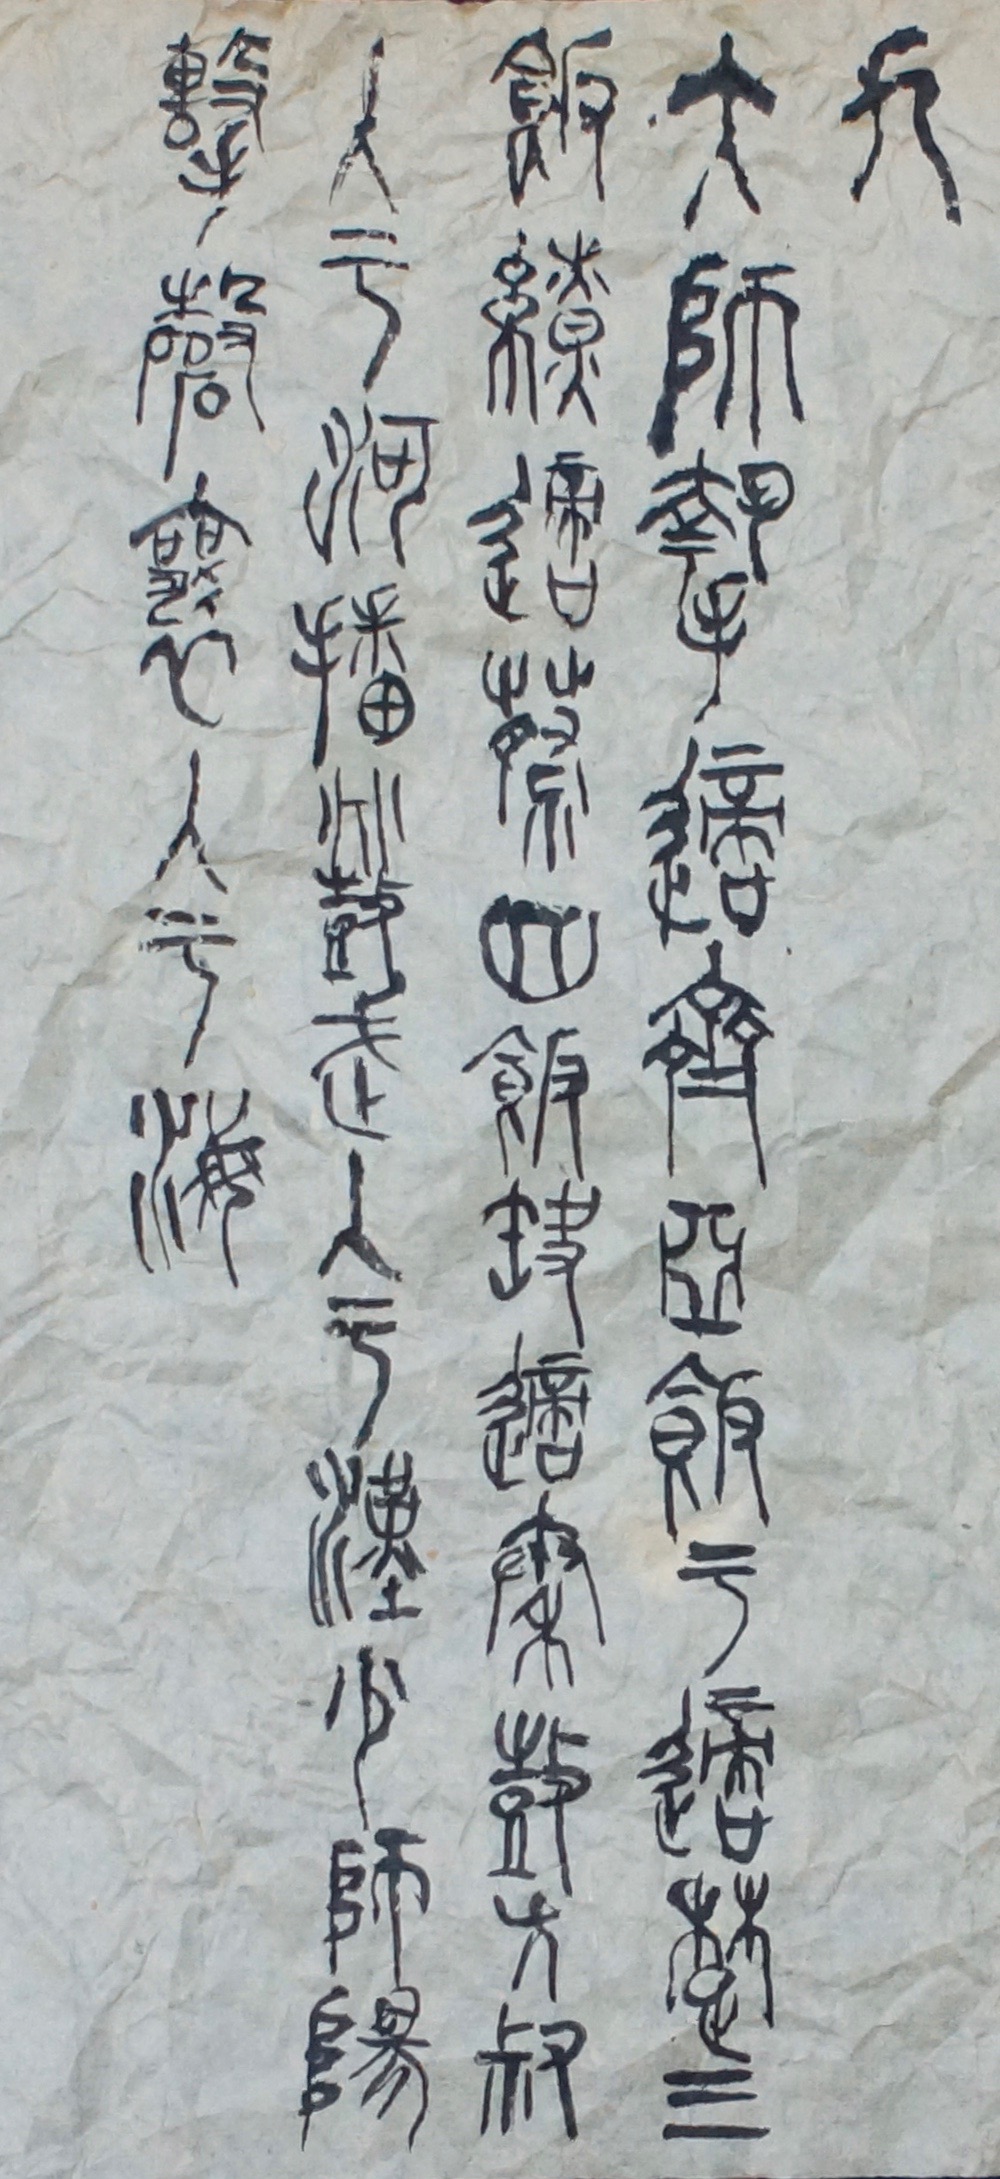 九
大師摯適齊亞飯于適楚三
飯繚適蔡四飯缺適秦鼓方叔
入于河播鼗武入于漢少師陽
擊磬襄入于海